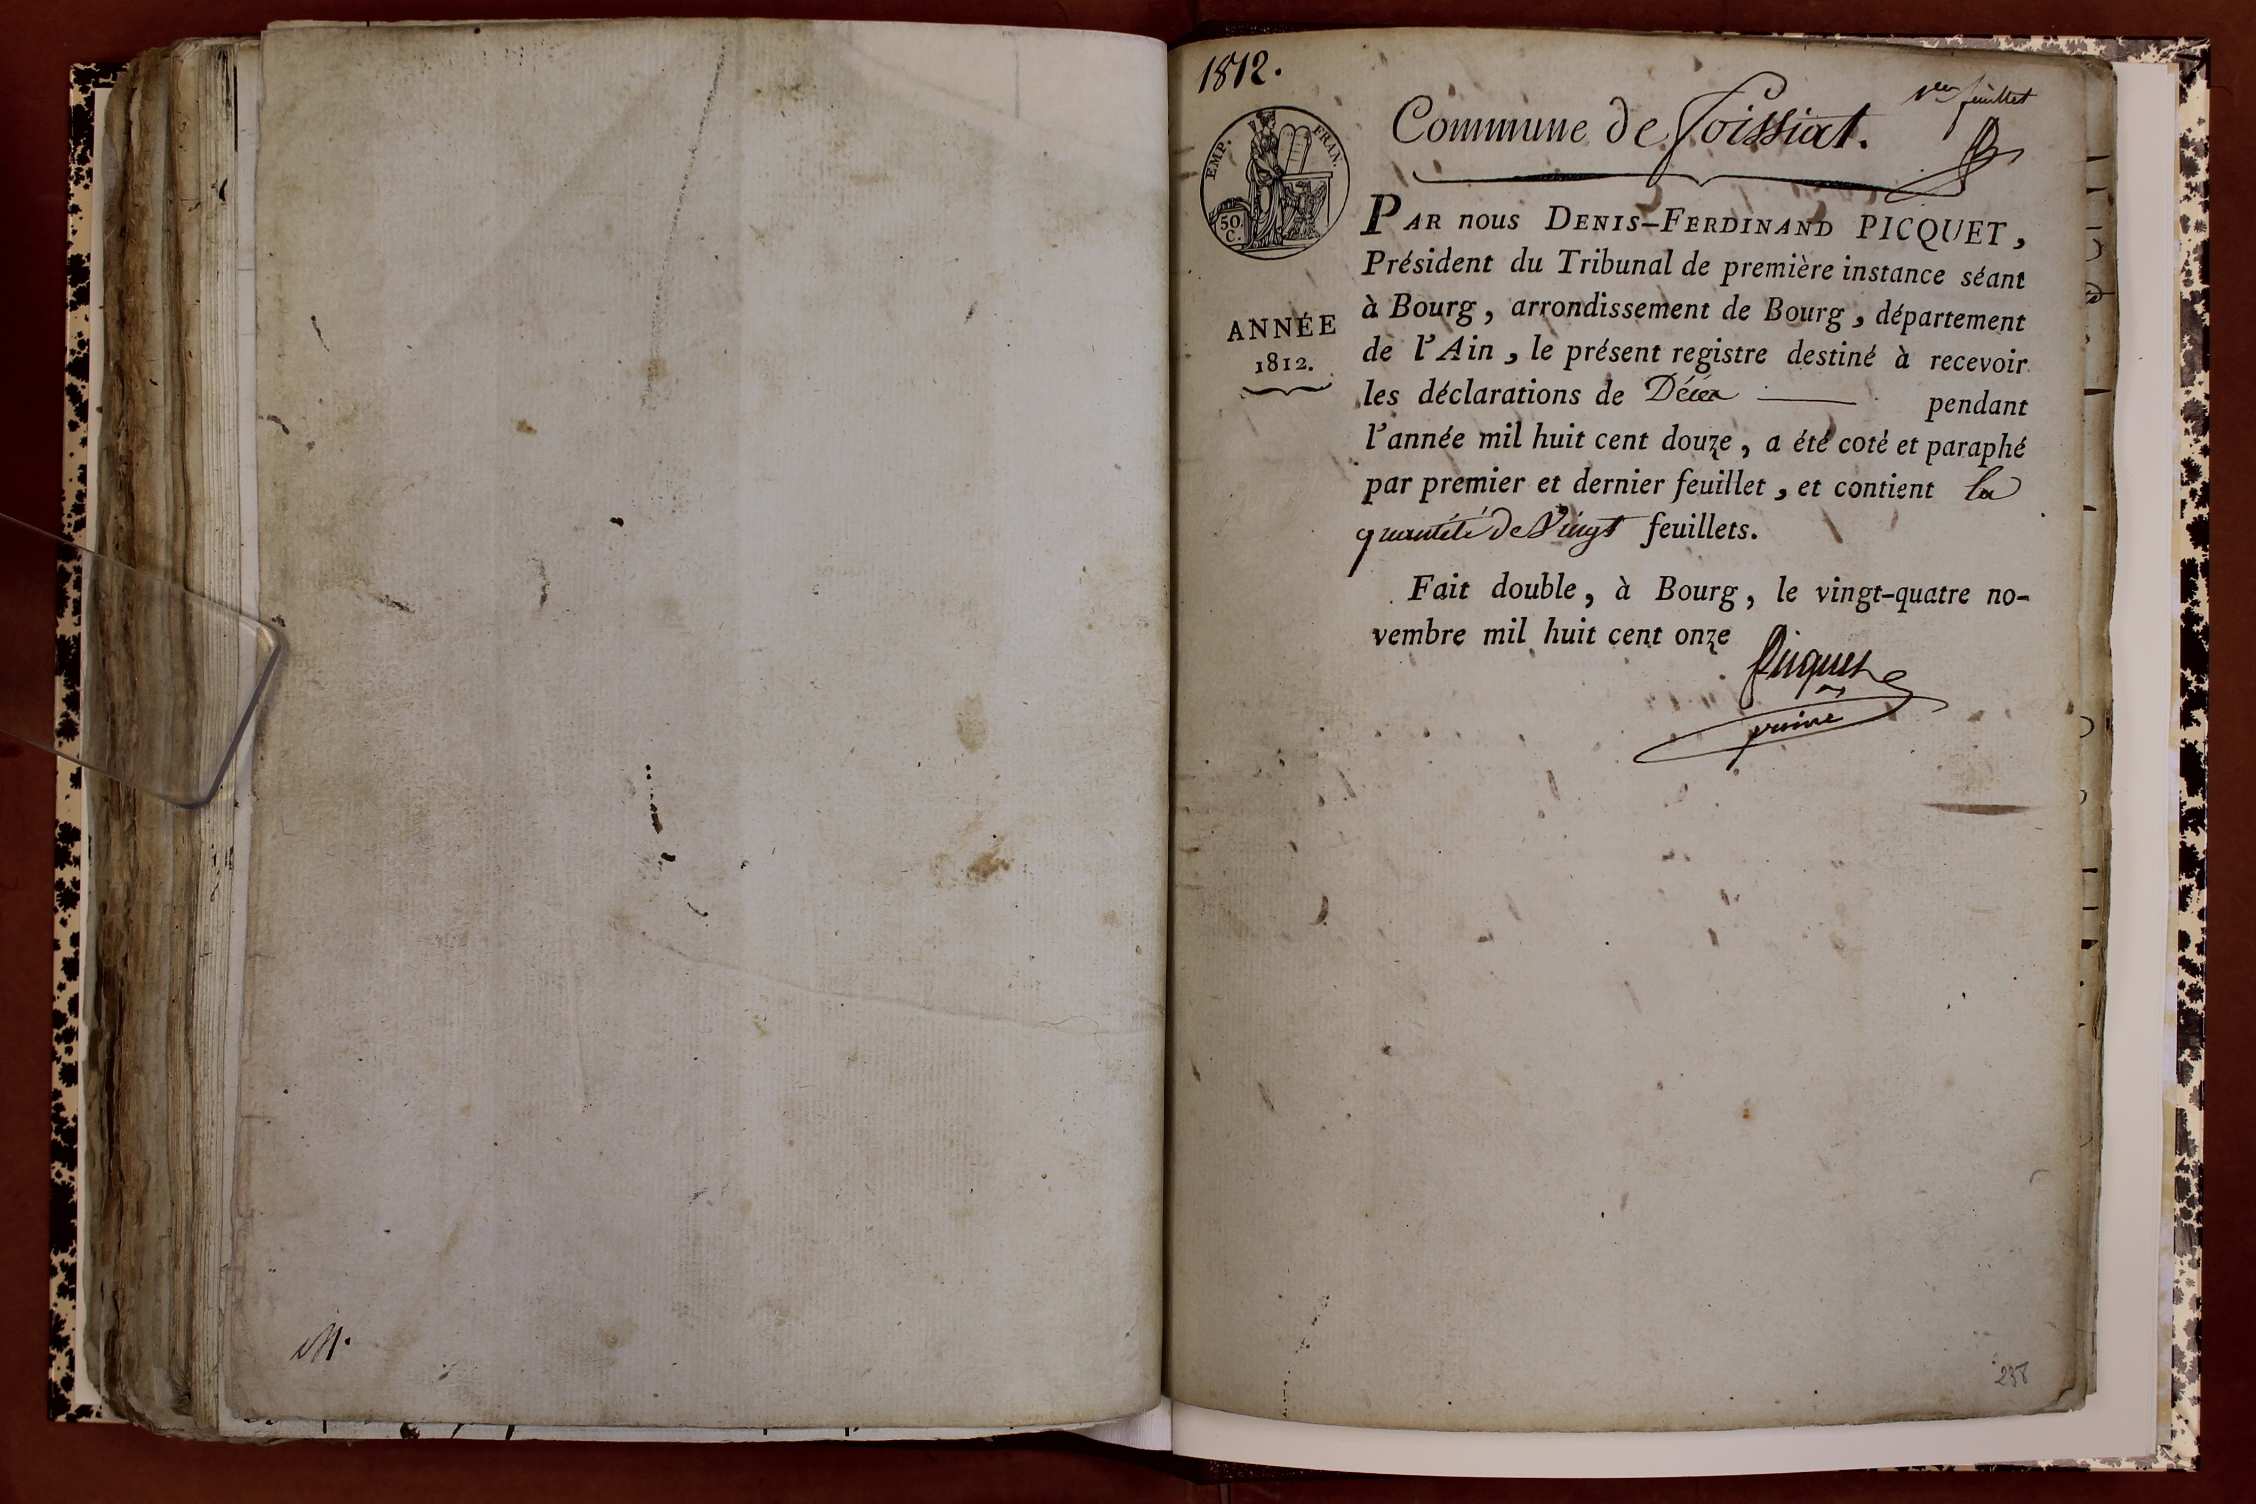 M.
1812.
1er feuillet
Commune de Foissiat.
EMP. FRAN.
50
C.
ANNÉE
1812.
PAR nous DENIS-FERDINAND PICQUET,
Président du Tribunal de première instance séant
à Bourg, arrondissement de Bourg, département
de l'Ain, le présent registre destiné à recevoir
les déclarations de Décès pendant
l'année mil huit cent douze, a été coté et paraphé
par premier et dernier feuillet, et contient la
quantité de Vingt feuillets.
Fait double, à Bourg, le vingt-quatre no-
vembre mil huit cent onze
Picquet
238